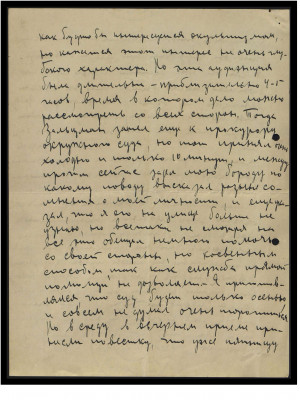 как будто бы интересуется окультизмом,
но кажется этот интерес не очень глу-
бокого характера. Но эта аудиенция
была длительна - приблизительно 4-5
часов, время в котором дело можно
рассмотреть со всех сторон. Тогда
зашел еще к прокурору
окружного суда, но тот принял очень
холодно и только 10 минут, и между
прочим сейчас задел мою бороду по
какому поводу высказал разные со-
мнения о моей личности, и
зал, что я его на улице больше не
узнаю, но все таки не смотря на
все это обещал немного помочь
со своей стороны, но косвенным
способом, так как служба прямой
помощи не дозволяет. Я
что суд будет только осенью
и совсем не думал очень торопиться.
Но в среду в вечернем приеме при-
несли повестку, что уже пятницу